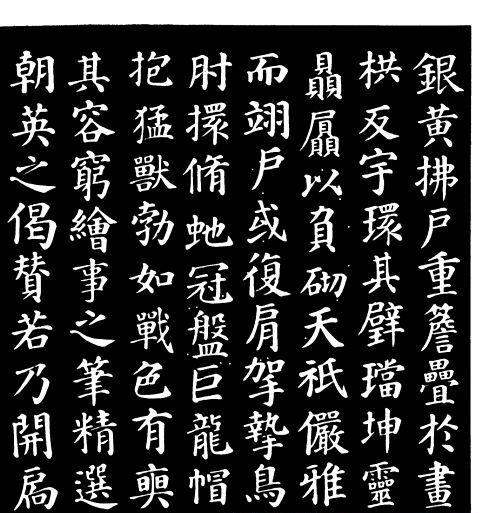 銀黃拂戶重簷疊於畫
栱反宇環其璧璫坤靈
贔屭以負砌天祇儼雅
而翊戶或復肩挐摯鳥
肘擐脩虵冠盤巨龍帽
抱猛獸勃如戰色有奭
其容窮繪事之筆精選
朝英之偈贊若乃開扃